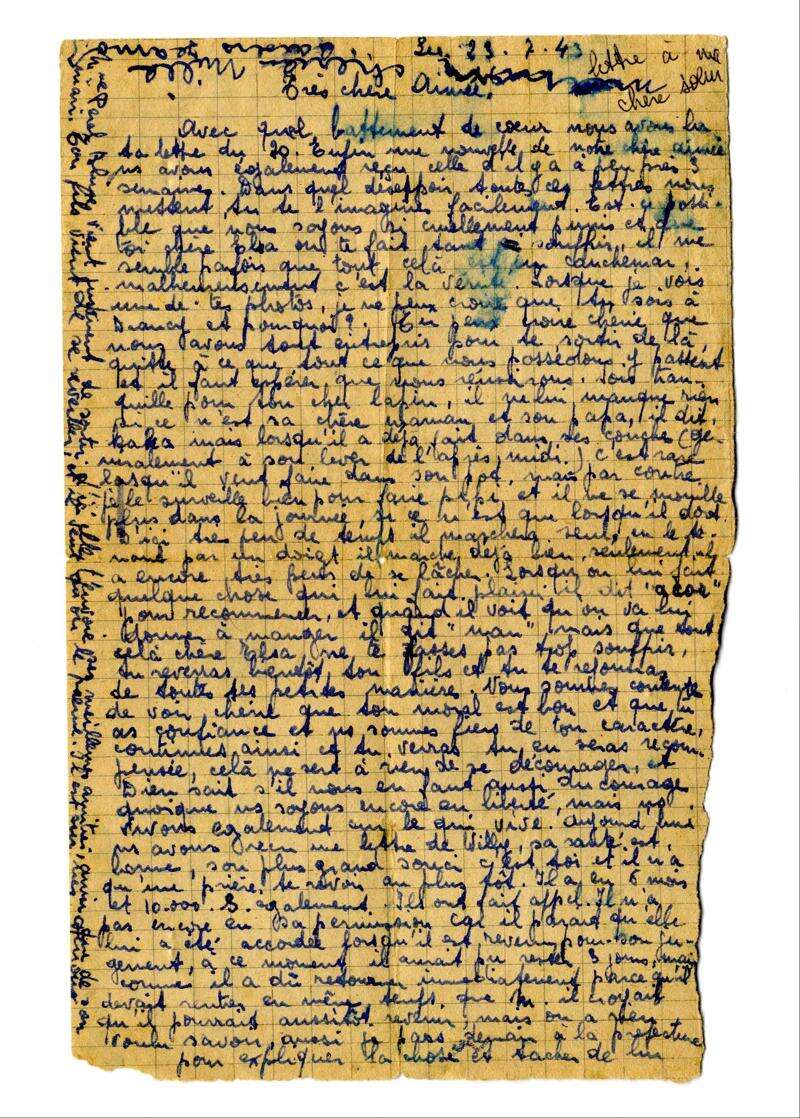 Le, 23.7.43
lettre à ma
chère soeur
Très chère Aimée,
Avec quel battement de coeur nous avons lu
ta lettre du 20. Enfin une nouvelle de notre chère aimée
ns avons également reçu celle d'il y a à peu près 3
semaines. Dans quel désespoir toutes ces lettres nous
mettent tu te l'imagines facilement. Est-ce possi-
ble que nous soyons si cruellement punis et que
toi chère Elsa on te fait tant souffrir, il me
semble parfois que tout celà est un cauchemar,
malheureusement c'est la vérité. Lorsque je vois
une de tes photos, je ne peux croire que tu sois à
Drancy et pourquoi? Tu peux croire chérie que
nous avons tout entrepris pour te sortir de là,
quitte à ce que tout ce que nous possédons y passent
et il faut espérer que nous réussirons. Sois tran-
quille pour ton cher lapin, il ne lui manque rien
si ce n'est sa chère maman et son papa, il dit,
kaka mais lorsqu'il a déjà fait dans ses couches (gé-
néralement à son lever de l'après midi.) c'est rare
lorsqu'il veut faire dans son pot, mais par contre
je le surveille bien pour faire pipi, et il ne se mouille
plus dans la journée, si ce n'est que lorsqu'il dort
D'ici très peu de temps il marchera seul, en le te-
nant par un doigt il marche déjà bien, seulement il
a encore très peur de se lâcher. Lorsqu'on lui fait
quelque chose qui lui fait plaisir il dit
pour recommencer, et quand il voit qu'on va lui
donner à manger il dit "nam" mais que tout
celà chère Elsa, ne te fasses pas trop souffrir,
tu reverras bientôt ton fils et tu te réjouiras
de toutes ses petites manières. Nous sommes contents
de voir chérie que ton moral est bon et que tu
as confiance et ns sommes fiers de ton caractère,
continues ainsi et tu verras tu en seras récom-
pensée, celà ne sert à rien de se décourager, et
Dieu sait s'il nous en faut aussi du courage
quoique ns soyons encore en liberté, mais ns
vivons également sur le qui vive. Aujourd'hui
ns avons reçu une lettre de Willy, sa santé est
bonne, son plus grand souci c'est toi et il n'a
qu'une prière, te revoir au plus tôt. Il a eu 6 mois
et 10.000. également. Ils ont fait appel. Il n'a
pas encore eu sa permission car il parait qu'elle
lui a été accordée lorsqu'il est revenu pour son ju-
gement, à ce moment il aurait pu rester 3 jours, mais
comme il a dû retourner immédiatement parce qu'il
devait rentrer en même temps que M. il croyait
qu'il pourrait aussitôt revenir, mais on a rien
voulu savoir, aussi je pars demain à la préfecture
pour expliquer la chose et tâcher de lui